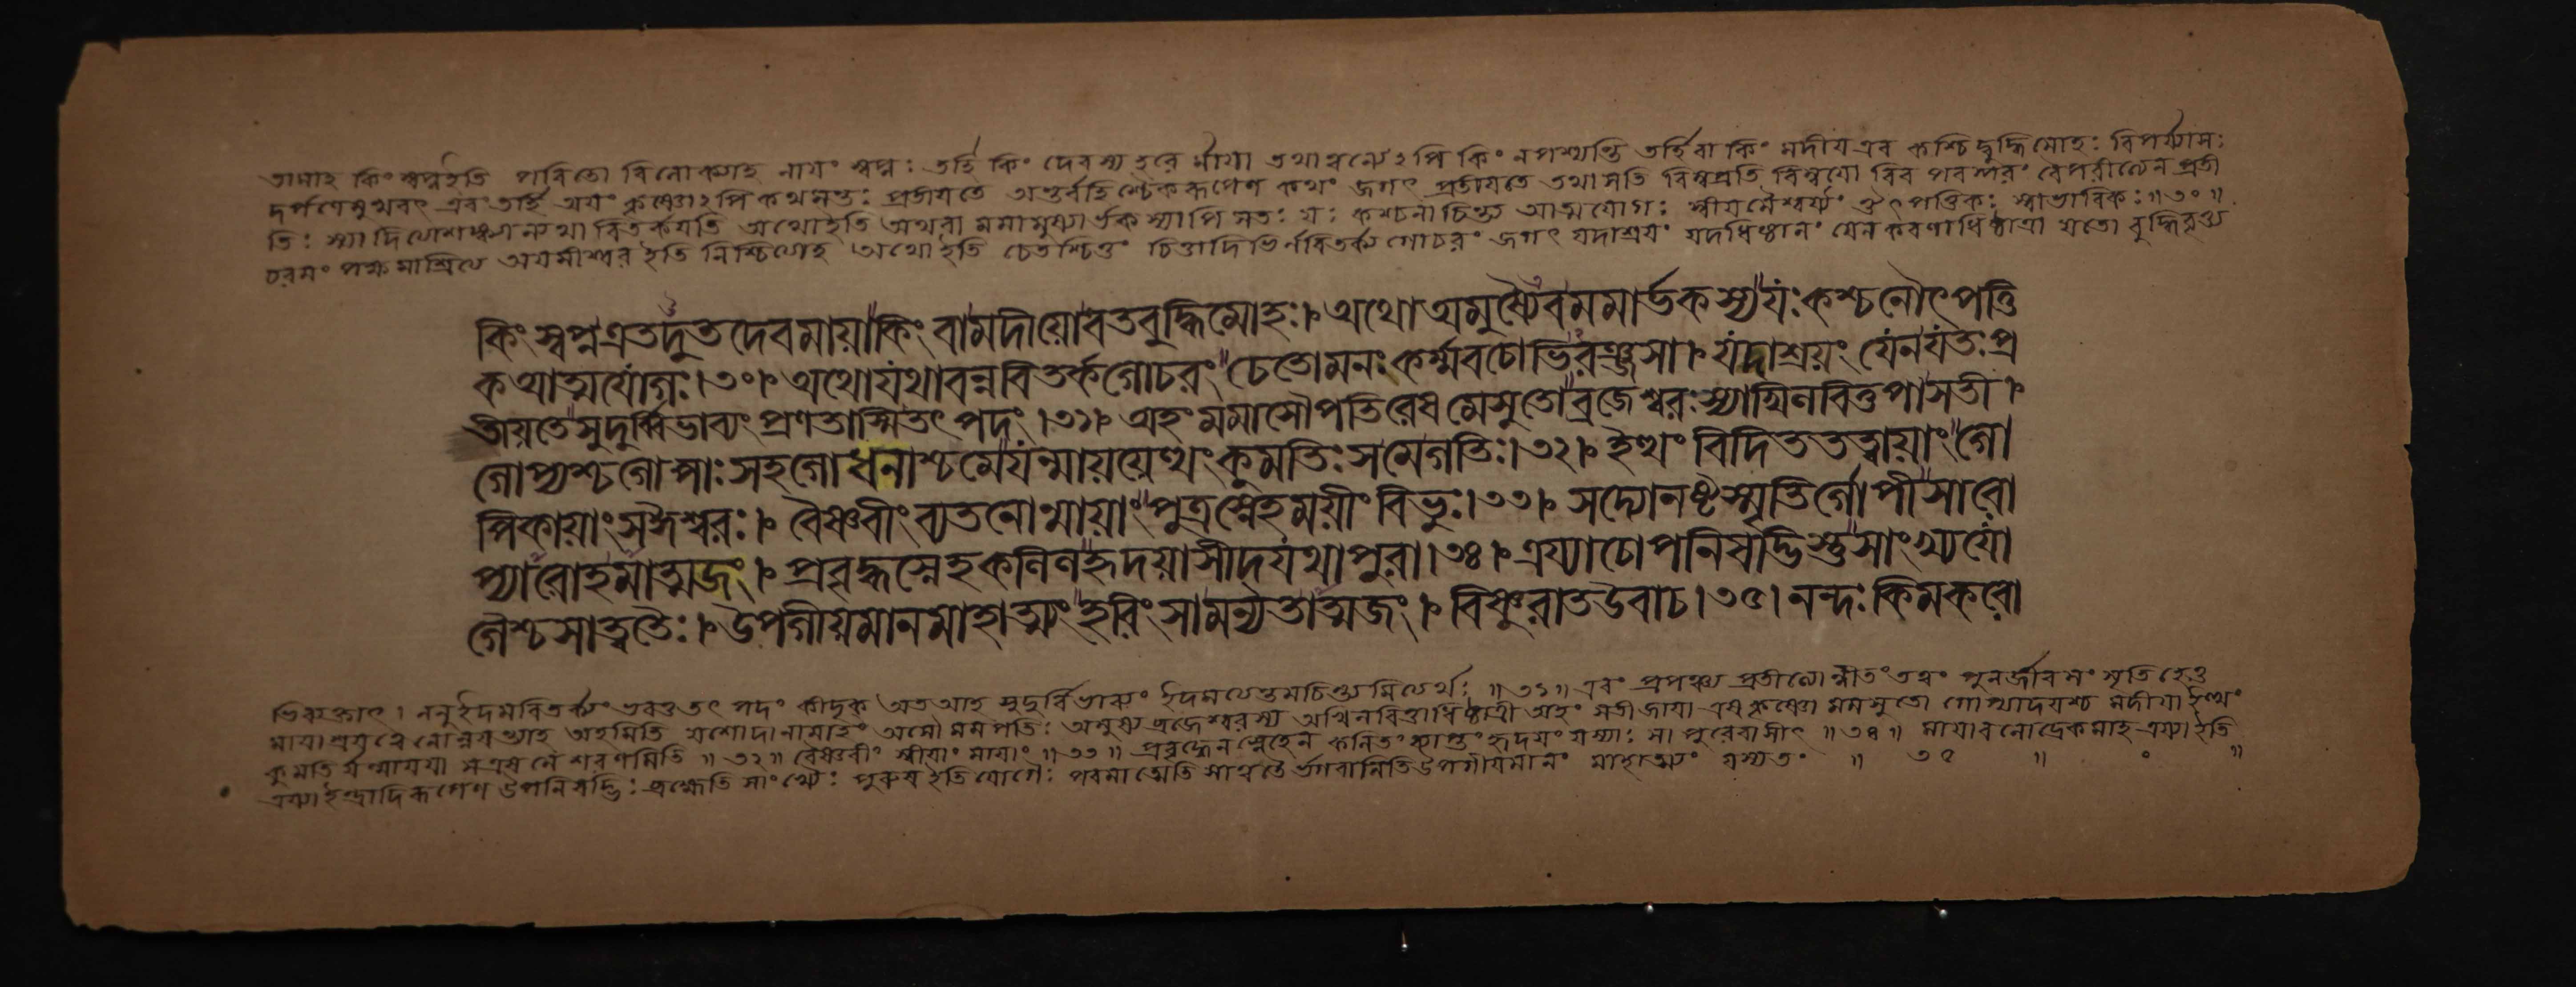 তামাহ কিং স্বপ্নইতি পরিতো বিলোক্যাহ নায়ং স্বপ্নঃ তর্হি কিং দেবস্য হরে র্মায়া তথাত্বেন্যেঽপি কিং নপশ্যন্তি তর্হিবা কিং মদীয়এব কশ্চি দ্বুদ্ধিমোহঃ বিপর্য্যাসঃ
দর্পণেমুখবৎ এবংতর্হি অয়ং কৃষ্ণোঽপি কথমন্তঃ প্রতীয়তে অন্তর্বহিশ্চৈকরূপেণ কথং জগৎ প্রতীয়তে তথাসতি বিম্বপ্রতি বিম্বয়ো রিব পরস্পরং বৈপরীত্যেন প্রতী
তিঃ স্যাদিত্যাশঙ্ক্যান্যথা বিতর্কয়তি অথোইতি অথবা মমামুষ্যার্ভক স্যাপি সতঃ যঃ কশ্চনাচিন্ত্য আত্মযোগঃ স্বীয়মৈশ্বর্য্যং ঔৎপত্তিকঃ স্বাভাবিকঃ॥৩০॥
চরমং পক্ষ মাশ্রিত্য অয়মীশ্বর ইতি নিশ্চিত্যাহ অথো ইতি চেতশ্চিত্তং চিত্তাদি ভির্নবিতর্ক্য গোচরং জগৎ যদাশ্রয়ং যদধিষ্ঠানং যেন করণাধিষ্ঠাত্রা যতো বুদ্ধিবৃত্ত্য
কিং স্বপ্নএতদুতদেবমায়াকিং বামদীয়োবতবুদ্ধিমোহঃ। অথোঅমুষ্যৈবমমার্ভকস্যযঃকশ্চনৌৎপত্তি
কআত্মযোগঃ।৩০। অথোযথাবন্নবিতর্কগোচরং চেতোমনঃকর্ম্মবচোভিরঞ্জসা। যদাশ্রয়ং যেনযতঃপ্র
তীয়তেসুদুর্ব্বিভাব্যং প্রণতাস্মিতৎপদং।৩১। অহংমমাসৌপতিরেষমেসুতোব্রজেশ্বরঃস্যাখিনবিত্তপাসতী।
গোপ্যশ্চগোপাঃসহগোধনাশ্চমেযন্মায়য়েত্থংকুমতিঃসমেগতিঃ।৩২। ইত্থং বিদিততত্বায়াং গো
পিকায়াংসঈশ্বরঃ। বৈষ্ণবীং ব্যতনোন্মায়াং পুত্রস্নেহময়ীং বিভুঃ।৩৩। সদ্যোনষ্টস্মৃতির্গোপীসারো
প্যারোহমাত্মজং। প্রবৃদ্ধস্নেহকলিলহৃদয়াসীদ্যথাপুরা।৩৪। ত্রয্যাচোপনিষদ্ভিস্তুসাংখ্যযো
গৈশ্চসাত্বতৈঃ। উপগীয়মানমাহাত্ম্যং হরিং সামন্যতাত্মজং। বিষ্ণুরাতউবাচ।৩৫। নন্দঃকিমকরো
ভিব্যক্তাৎ। ননুইদমবিতর্ক্যং ভবতুতৎ পদং কীদৃক্ অতআহ সুদুর্বিভাব্যং ইদমত্যন্তমচিন্ত্যমিত্যর্থঃ ॥৩১॥ এবং প্রপঞ্চ্য প্রতীত্যোন্নীতং তত্বং পুনর্জীবনং স্মৃতিহেতু
মায়াশ্রয়ত্বেনোন্নয়ন্ত্যাহ অহমিতি যশোদানামাহং অসৌ মমপতিঃ অমুষ্য ব্রজেশ্বরস্য অখিলবিত্তাধিষ্ঠাত্রী অহং সতীজায়া এষকৃষ্ণো মমসুতো গোপ্যাদয়শ্চ মদীয়া ইত্থং
কুমতি র্যন্মায়য়া সএবমে শরণমিতি ॥৩২॥ বৈষ্ণবীং স্বীয়াং মায়াং ॥৩৩॥ প্রবৃদ্ধেনস্নেহেন কলিতং ব্যাপ্তং হৃদয়ং যস্যাঃ সা পুরেবাসীৎ ॥৩৪॥ মায়াবলোদ্রেকমাহ ত্রয্যাইতি
ত্রয্যাইন্দ্রাদিরূপেণ উপনিষদ্ভিঃ ব্রহ্মেতি সাংখ্যৈঃ পুরুষ ইতি যোগৈঃ পরমাত্মেতি সাত্বতৈ র্ভগবানিতিউপগীয়মানং মাহাত্ম্যং যস্যতং ॥ ৩৫ ॥ ০ ॥